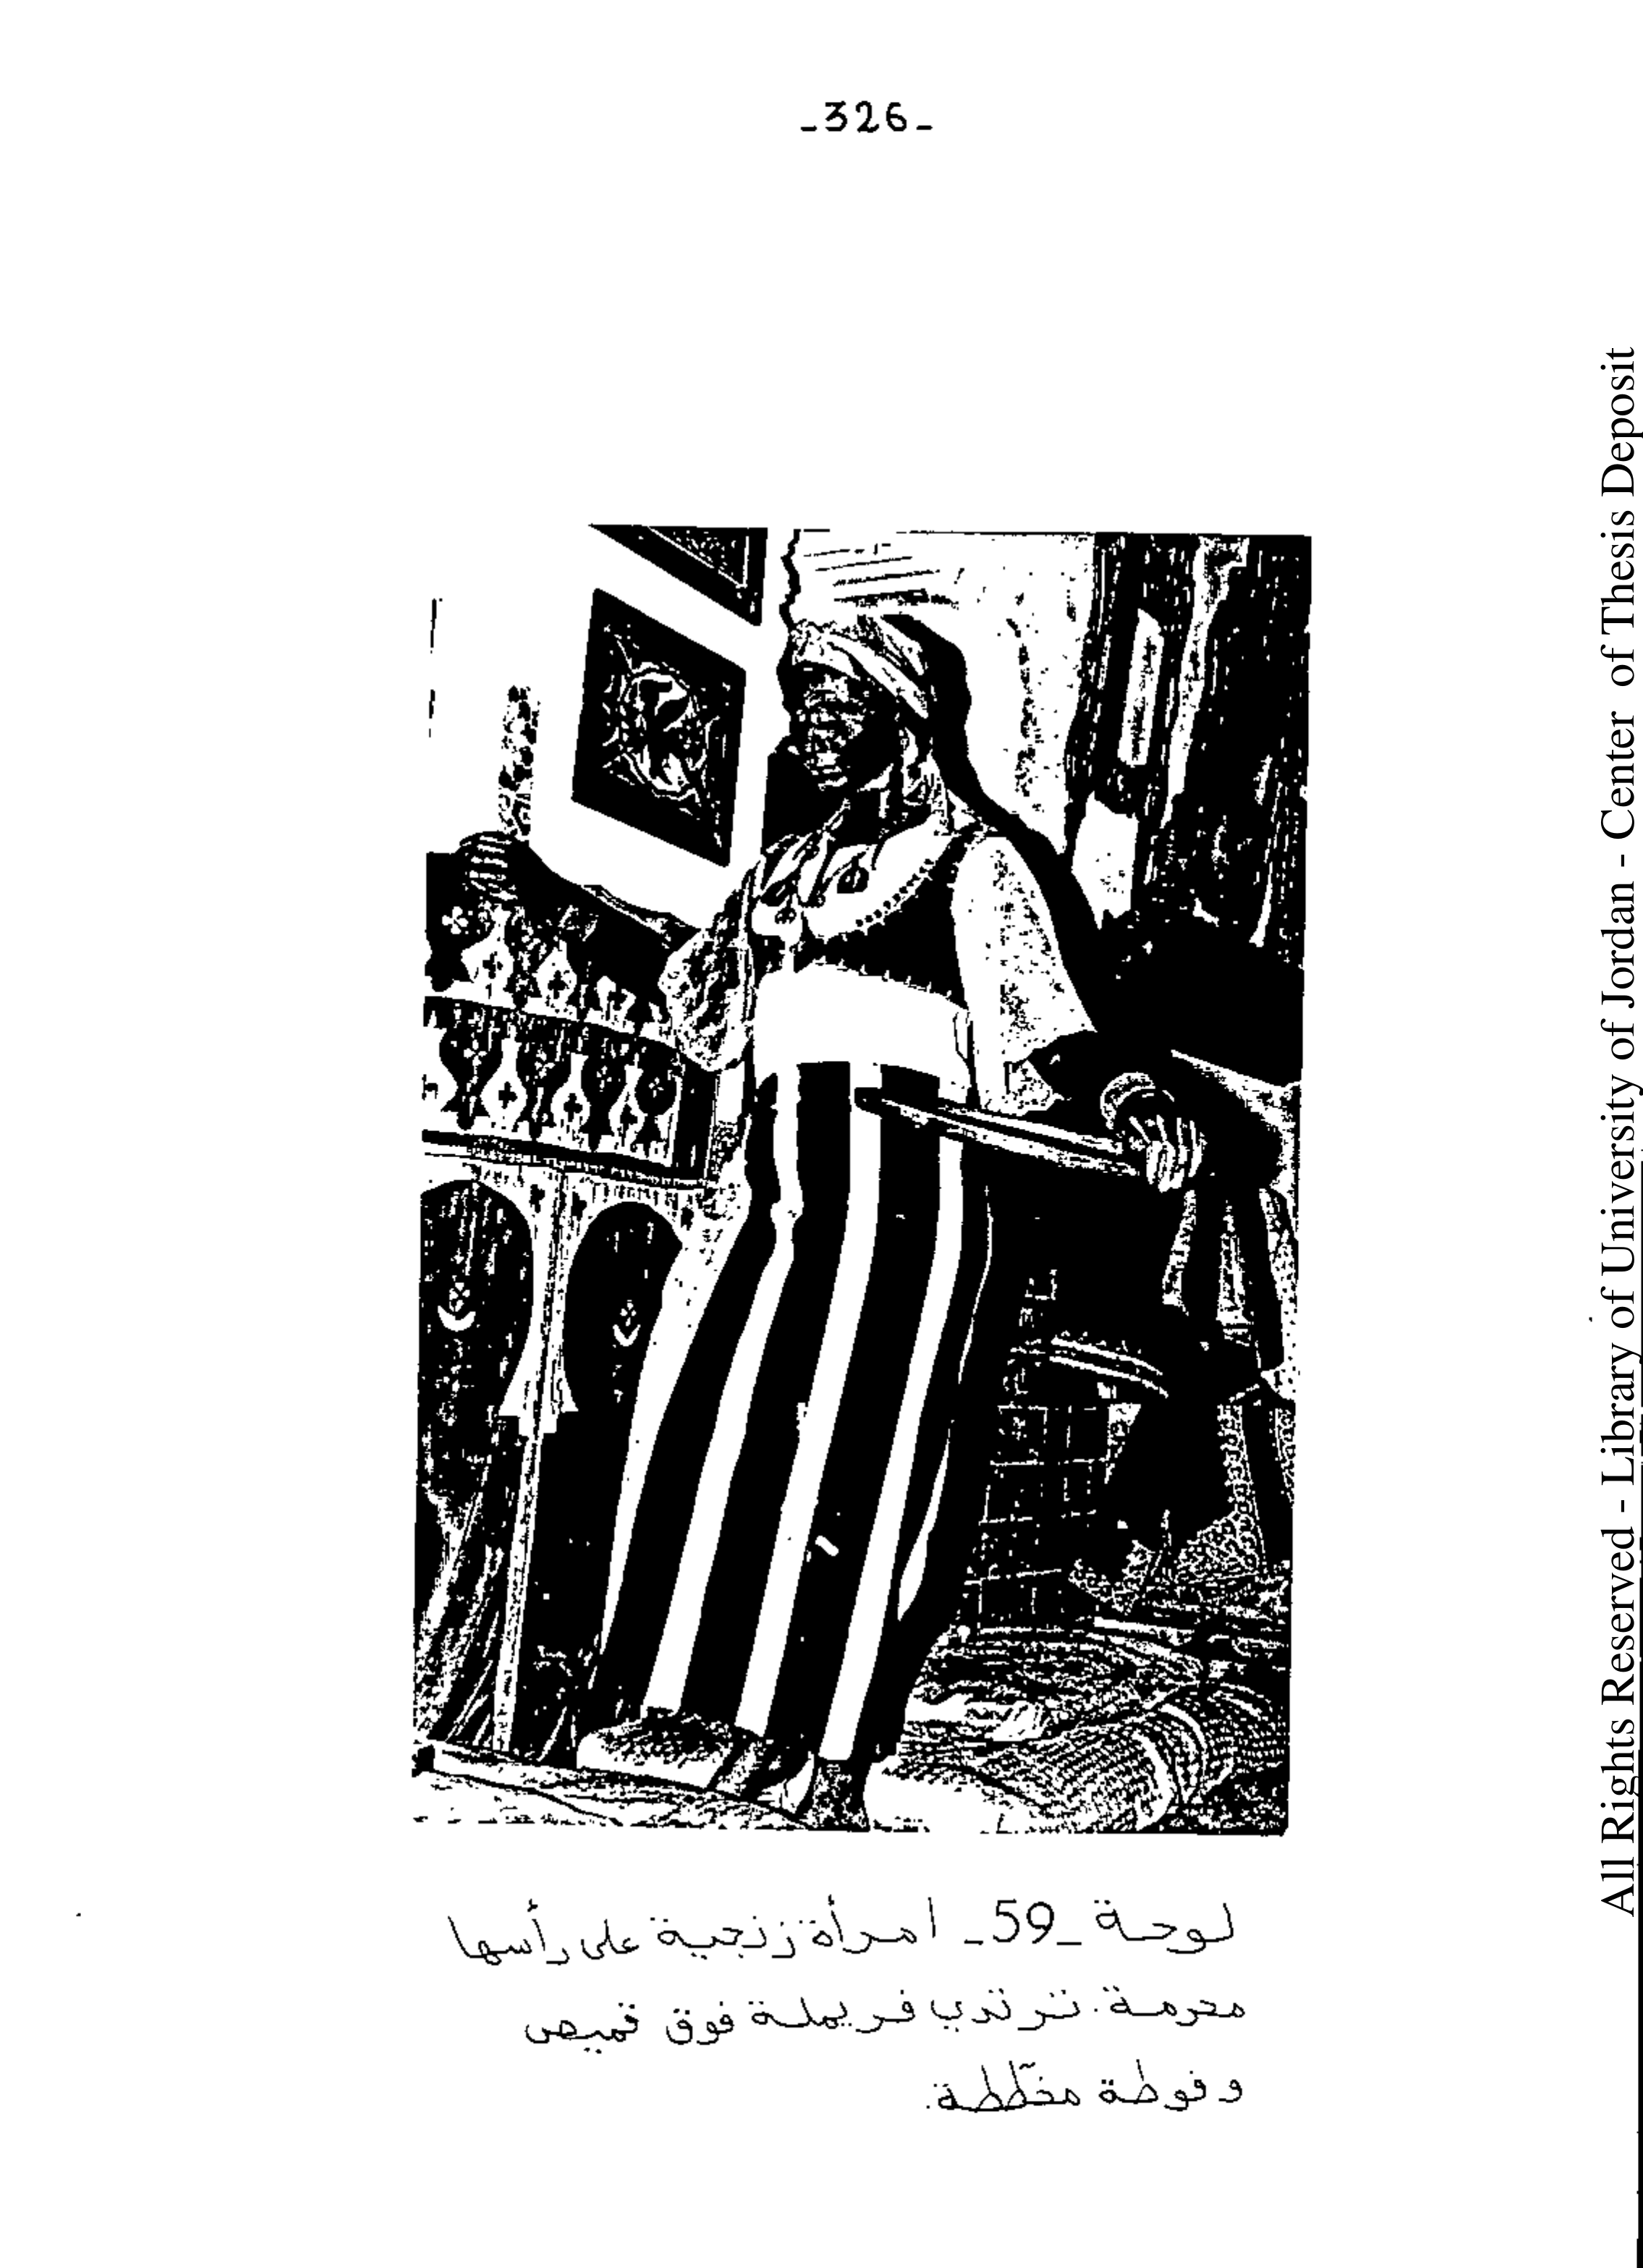 -326-
لوحة -59- امرأة زنجية على رأسها
محرمة. ترتدي فريملة فوق قميص
وفوطة مخطّطة.
All Rights Reserved - Library of University of Jordan - Center of Thesis Deposit